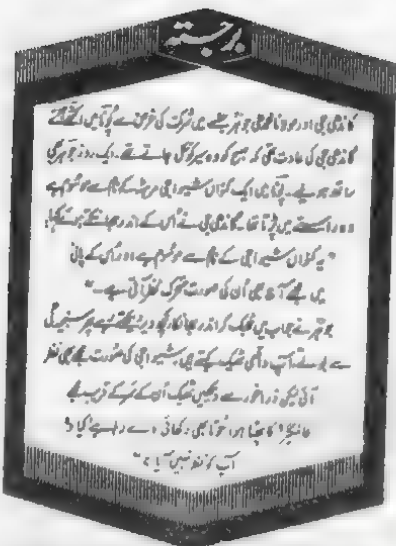 برجستہ
گاندھی جی اور مولانا محمد علی جوہر جلسے میں شرکت کی غرض سے پُونا میں اکٹھے تھے
گاندھی جی کی عادت تھی کہ صبح کو وہ سیر کو نکل جاتے تھے۔ ایک روز جوہر بھی
ساتھ ہو لیے۔ پُونا میں ایک کنواں شیوا جی مرہٹہ کے نام سے موسوم ہے
وہ راستے میں پڑتا تھا۔ گاندھی جی نے اُس کے اندر جھانکتے ہوئے کہا،
"یہ کنواں شیوا جی کے نام سے موسوم ہے اور اس کے پانی
میں مجھے آج بھی اُن کی صورت نظر آتی ہے۔"
جوہر نے جواب میں جھک کر اندر جھانکا، کچھ دیر دیکھتے رہے پھر سنجیدگی
سے بولے، آپ واقعی ٹھیک کہتے ہیں، شیوا جی کی صورت مجھے بھی نظر
آئی لیکن ذرا غور سے دیکھیں ٹھیک اُن کے سر کے قریب مجھے
عالمگیر کا جوتا بھی دکھائی دے رہا ہے کیا
آپ کو نظر نہیں آیا؟"